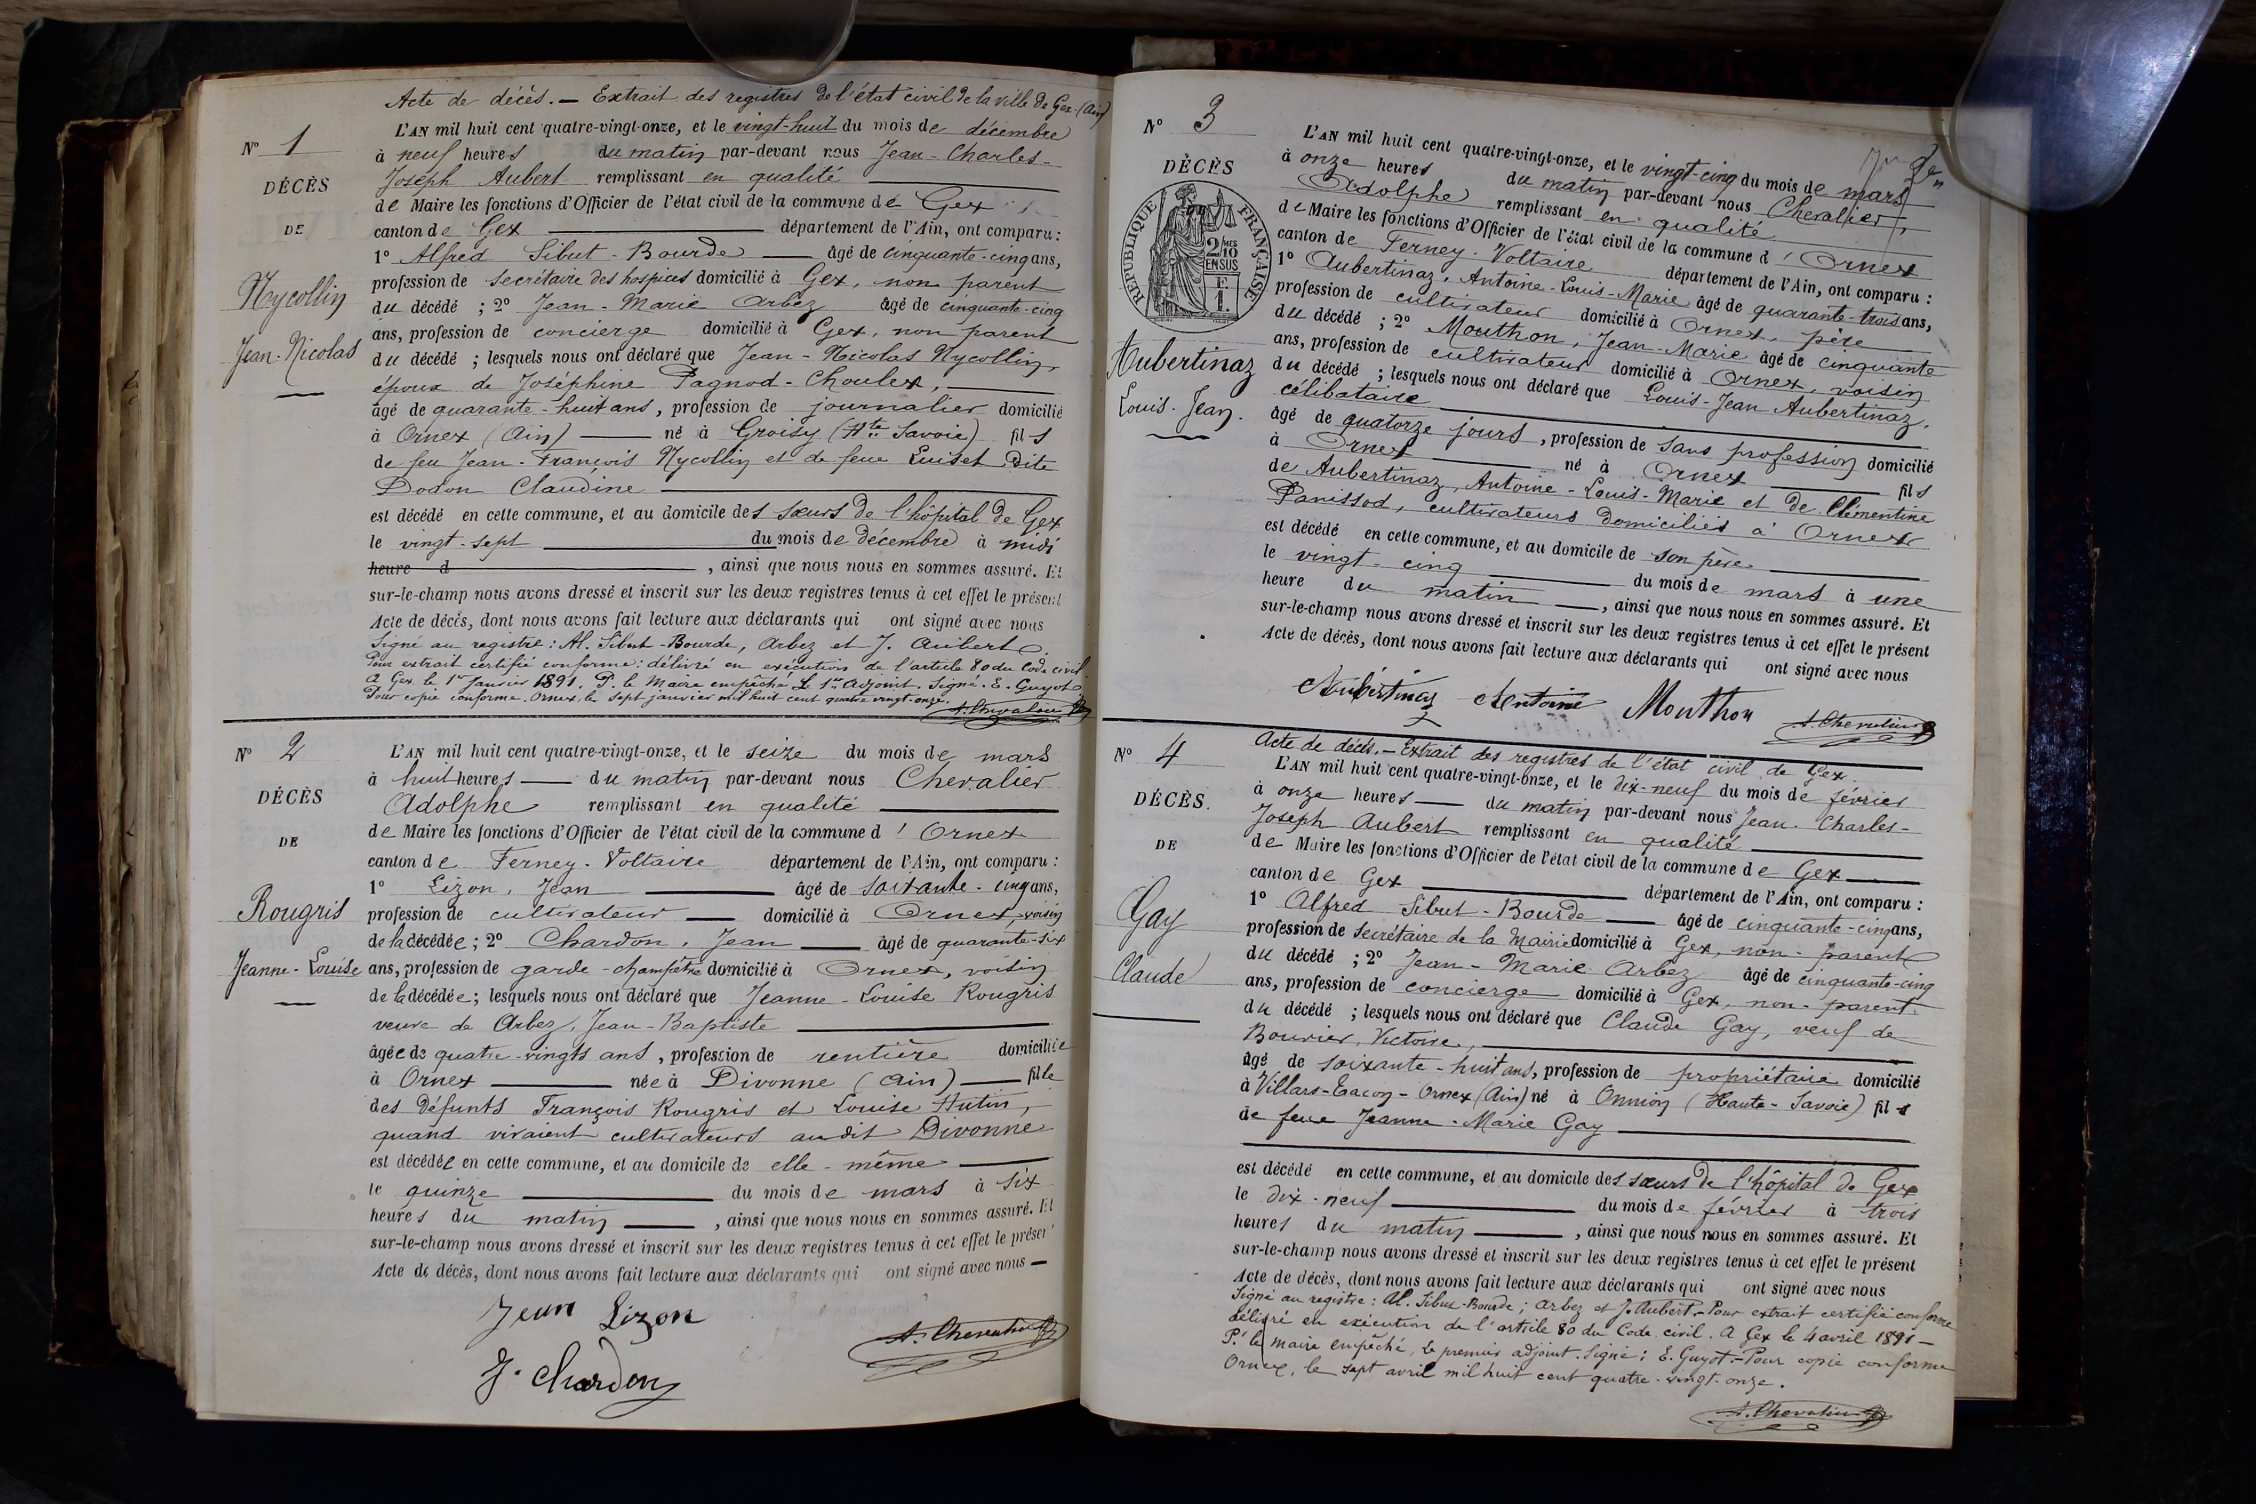 Acte de décès. — Extrait des registres de l'état civil de la ville de Gex (Ain)
N° 1
DÉCÈS
DE
Nycollin
Jean-Nicolas
L'AN mil huit cent quatre-vingt-onze, et le vingt-huit du mois de décembre
à neuf heures du matin par-devant nous Jean-Charles-
Joseph Aubert remplissant en qualité
de Maire les fonctions d'Officier de l'état civil de la commune de Gex
canton de Gex département de l'Ain, ont comparu :
1° Alfred Sibut-Bourde âgé de cinquante-cinq ans,
profession de secrétaire des hospices domicilié à Gex, non parent
du décédé ; 2° Jean-Marie Arbez âgé de cinquante-cinq
ans, profession de concierge domicilié à Gex, non parent
du décédé ; lesquels nous ont déclaré que Jean-Nicolas Nycollin,
époux de Joséphine Pagnod-Choulex,
âgé de quarante-huit ans, profession de journalier domicilié
à Ornex (Ain) né à Groisy (Hte Savoie) fils
de feu Jean-François Nycollin et de feue Luiset dite
Dodon Claudine
est décédé en cette commune, et au domicile des sœurs de l'hôpital de Gex
le vingt-sept du mois de décembre à midi
heure d , ainsi que nous nous en sommes assuré. Et
sur-le-champ nous avons dressé et inscrit sur les deux registres tenus à cet effet le présent
Acte de décès, dont nous avons fait lecture aux déclarants qui ont signé avec nous
Signé au registre : Al. Sibut-Bourde, Arbez et J. Aubert.
Pour extrait certifié conforme : délivré en exécution de l'article 80 du Code civil.
A Gex le 1er Janvier 1891. P. le Maire empêché Le 1er Adjoint. Signé. E. Guyot
Pour copie conforme. Ornex, le sept janvier mil huit cent quatre vingt-onze.
A. Chevalier
N° 2
DÉCÈS
DE
Rougris
Jeanne-Louise
L'AN mil huit cent quatre-vingt-onze, et le seize du mois de mars
à huit heures du matin par-devant nous Chevalier
Adolphe remplissant en qualité
de Maire les fonctions d'Officier de l'état civil de la commune d'Ornex
canton de Ferney-Voltaire département de l'Ain, ont comparu :
1° Lizon, Jean âgé de soixante-cinq ans,
profession de cultivateur domicilié à Ornex, voisin
de la décédée ; 2° Chardon, Jean âgé de quarante-six
ans, profession de garde-champêtre domicilié à Ornex, voisin
de la décédée ; lesquels nous ont déclaré que Jeanne-Louise Rougris
veuve de Arbez, Jean-Baptiste
âgée de quatre-vingts ans, profession de rentière domiciliée
à Ornex née à Divonne (Ain) fille
des défunts François Rougris et Louise Hutin,
quand vivaient cultivateurs audit Divonne
est décédée en cette commune, et au domicile de elle-même
le quinze du mois de mars à six
heures du matin , ainsi que nous nous en sommes assuré. Et
sur-le-champ nous avons dressé et inscrit sur les deux registres tenus à cet effet le présent
Acte de décès, dont nous avons fait lecture aux déclarants qui ont signé avec nous
Jean Lizon
A. Chevalier
J. Chardon
N° 3
DÉCÈS
RÉPUBLIQUE FRANÇAISE
2/10 MES
EN SUS
F
1.
Aubertinaz
Louis-Jean.
L'AN mil huit cent quatre-vingt-onze, et le vingt-cinq du mois de mars
à onze heures du matin par-devant nous Chevalier,
Adolphe remplissant en qualité
de Maire les fonctions d'Officier de l'état civil de la commune d'Ornex
canton de Ferney-Voltaire département de l'Ain, ont comparu :
1° Aubertinaz, Antoine-Louis-Marie âgé de quarante-trois ans,
profession de cultivateur domicilié à Ornex, père
du décédé ; 2° Mouthon, Jean-Marie âgé de cinquante
ans, profession de cultivateur domicilié à Ornex, voisin
du décédé ; lesquels nous ont déclaré que Louis-Jean Aubertinaz,
célibataire
âgé de quatorze jours, profession de sans profession domicilié
à Ornex né à Ornex fils
de Aubertinaz, Antoine-Louis-Marie et de Clémentine
Panissod, cultivateurs domiciliés à Ornex
est décédé en cette commune, et au domicile de son père
le vingt-cinq du mois de mars à une
heure du matin , ainsi que nous nous en sommes assuré. Et
sur-le-champ nous avons dressé et inscrit sur les deux registres tenus à cet effet le présent
Acte de décès, dont nous avons fait lecture aux déclarants qui ont signé avec nous
Aubertinaz Antoine Mouthon A. Chevalier
Acte de décès. — Extrait des registres de l'état civil de Gex.
N° 4
DÉCÈS.
DE
Gay
Claude
L'AN mil huit cent quatre-vingt-onze, et le dix-neuf du mois de février
à onze heures du matin par-devant nous Jean-Charles-
Joseph Aubert remplissant en qualité
de Maire les fonctions d'Officier de l'état civil de la commune de Gex
canton de Gex département de l'Ain, ont comparu :
1° Alfred Sibut-Bourde âgé de cinquante-cinq ans,
profession de secrétaire de la Mairie domicilié à Gex, non-parent
du décédé ; 2° Jean-Marie Arbez âgé de cinquante-cinq
ans, profession de concierge domicilié à Gex, non-parent
du décédé ; lesquels nous ont déclaré que Claude Gay, veuf de
Bouvier, Victoire,
âgé de soixante-huit ans, profession de propriétaire domicilié
à Villars-Tacon-Ornex (Ain) né à Onnion (Haute-Savoie) fils
de feue Jeanne-Marie Gay
est décédé en cette commune, et au domicile des sœurs de l'hôpital de Gex
le dix-neuf du mois de février à trois
heures du matin , ainsi que nous nous en sommes assuré. Et
sur-le-champ nous avons dressé et inscrit sur les deux registres tenus à cet effet le présent
Acte de décès, dont nous avons fait lecture aux déclarants qui ont signé avec nous
Signé au registre : Al. Sibut-Bourde ; Arbez et J. Aubert. — Pour extrait certifié conforme
délivré en exécution de l'article 80 du Code civil. A Gex le 4 avril 1891 —
P. le Maire empêché, le premier adjoint. Signé : E. Guyot. — Pour copie conforme
Ornex, le sept avril mil huit cent quatre-vingt-onze.
A. Chevalier